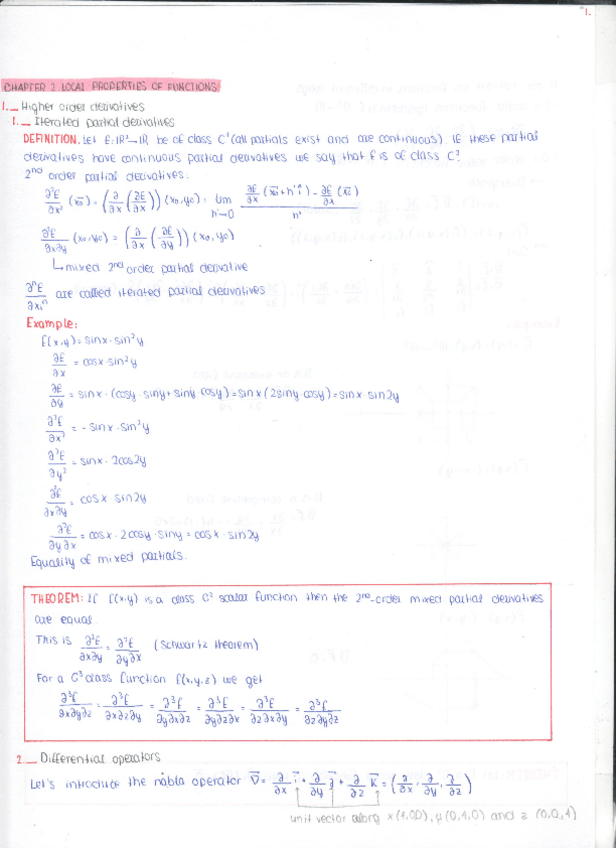 1.
CHAPTER 2. LOCAL PROPERTIES OF FUNCTIONS
1._ Higher order derivatives
1._ Iterated partial derivatives
DEFINITION. Let f: ℝ²→ℝ be of class C¹ (all partials exist and are continuous). If these partial
derivatives have continuous partial derivatives we say that f is of class C²
2nd order partial derivatives.
∂²f/∂x² (x₀) = (∂/∂x (∂f/∂x)) (x₀,y₀) = lim h→0 (∂f/∂x (x₀+h i) - ∂f/∂x (x₀)) / h
∂²f/∂x∂y (x₀,y₀) = (∂/∂x (∂f/∂y)) (x₀,y₀)
↳ mixed 2nd order partial derivative
∂ⁿf/∂xᵢⁿ are called iterated partial derivatives
Example:
f(x,y) = sinx · sin²y
∂f/∂x = cosx · sin²y
∂f/∂y = sinx · (cosy · siny + siny cosy) = sinx (2siny cosy) = sinx · sin2y
∂²f/∂x² = - sinx · sin²y
∂²f/∂y² = sinx · 2cos2y
∂²f/∂x∂y = cosx · sin2y
∂²f/∂y∂x = cosx · 2cosy · siny = cosx · sin2y
Equality of mixed partials.
THEOREM: If f(x,y) is a class C² scalar function then the 2nd-order mixed partial derivatives
are equal.
This is ∂²f/∂x∂y = ∂²f/∂y∂x (Schwartz theorem)
For a C³ class function f(x,y,z) we get
∂³f/∂x∂y∂z = ∂³f/∂x∂z∂y = ∂³f/∂y∂x∂z = ∂³f/∂y∂z∂x = ∂³f/∂z∂x∂y = ∂³f/∂z∂y∂x
2._ Differential operators
Let's introduce the nabla operator ∇ = ∂/∂x i + ∂/∂y j + ∂/∂z k = (∂/∂x, ∂/∂y, ∂/∂z)
unit vector along x (1,0,0), y (0,1,0) and z (0,0,1)